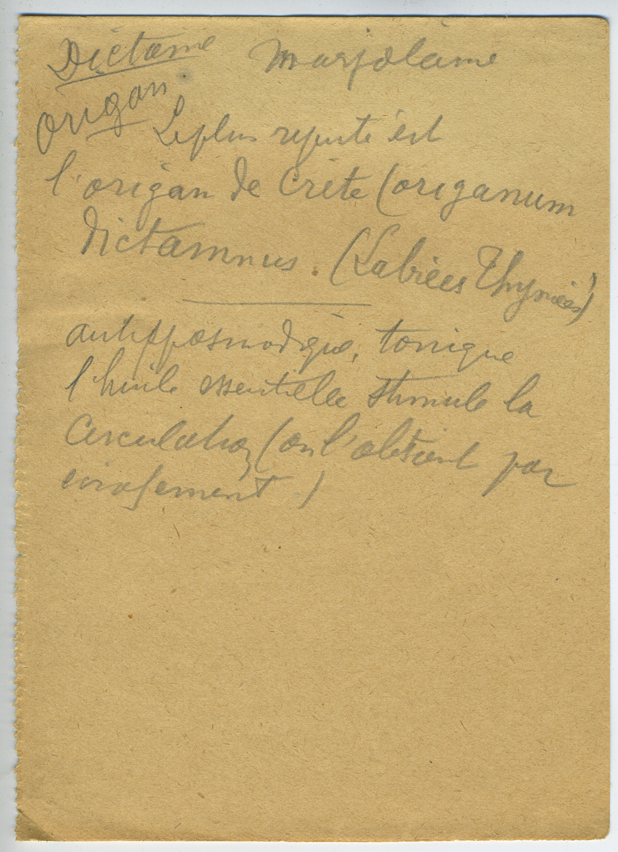 Dictame Marjolaine
origan
Le plus réputé est
l'origan de Crète (origanum
Dictamnus. (Labiées Thymées)
antispasmodique, tonique
l'huile essentielle stimule la
circulation (on l'obtient par
écrasement)